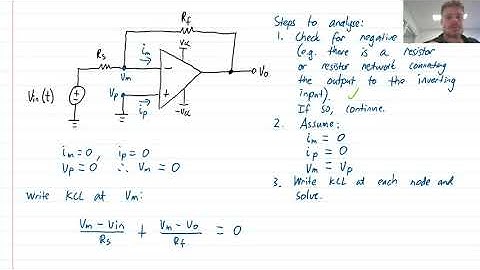 Rf
Rs
im
Vcc
Vm
Vo
Vin(t)
Vp
ip
-Vcc
im = 0, ip = 0
Vp = 0 ∴ Vm = 0
Write KCL at Vm:
Vm - Vin / Rs + Vm - Vo / Rf = 0
Steps to analyse:
1. Check for negative
(e.g. there is a resistor
or resistor network connecting
the output to the inverting
input). ✓
If so, continue.
2. Assume:
im = 0
ip = 0
Vm = Vp
3. Write KCL at each node and
solve.